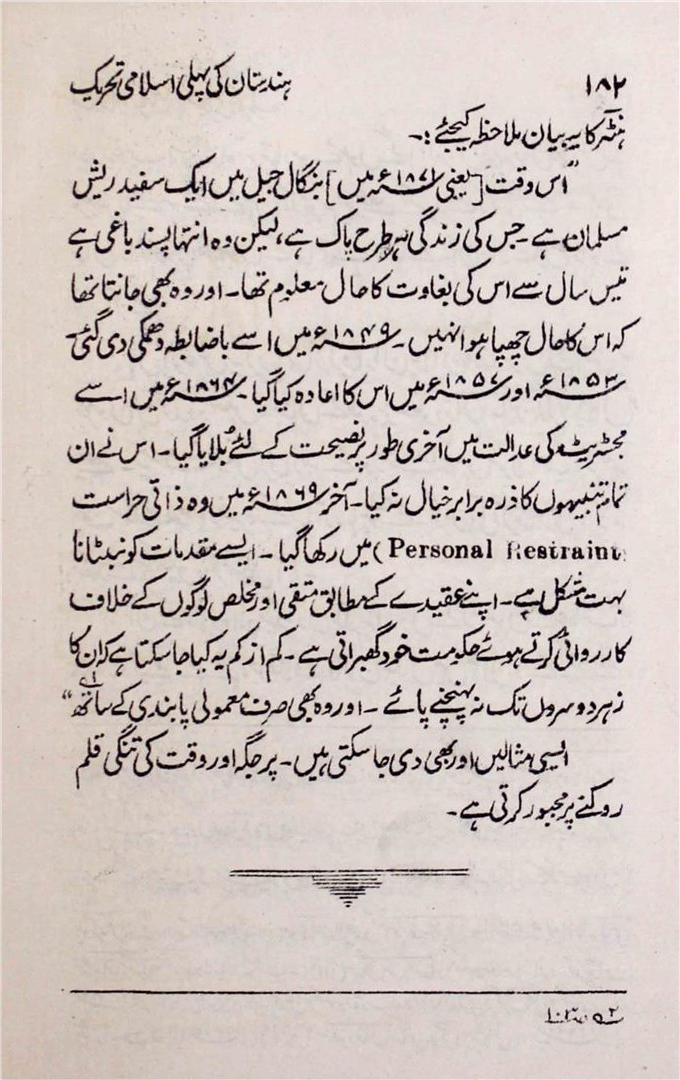 ۱۸۲ ہندستان کی پہلی اسلامی تحریک
ہنٹر کا یہ بیان ملاحظہ کیجئے :۔
"اس وقت [یعنی ۱۸۷۱ء میں] بنگال جیل میں ایک سفید ریش
مسلمان ہے۔ جس کی زندگی ہر طرح پاک ہے، لیکن وہ انتہا پسند باغی ہے
تیس سال سے اس کی بغاوت کا حال معلوم تھا۔ اور وہ بھی جانتا تھا
کہ اس کا حال چھپا ہوا نہیں۔ ۱۸۴۹ء میں اسے باضابطہ دھمکی دی گئی۔
۱۸۵۳ء اور ۱۸۵۷ء میں اس کا اعادہ کیا گیا۔ ۱۸۶۴ء میں اسے
مجسٹریٹ کی عدالت میں آخری طور پر نصیحت کے لئے بلایا گیا۔ اس نے ان
تمام تنبیہوں کا ذرہ برابر خیال نہ کیا۔ آخر ۱۸۶۹ء میں وہ ذاتی حراست
(Personal Restraint) میں رکھا گیا۔ ایسے مقدمات کو نبٹانا
بہت مشکل ہے۔ اپنے عقیدے کے مطابق متقی اور مخلص لوگوں کے خلاف
کارروائی کرتے ہوئے حکومت خود گھبراتی ہے۔ کم از کم یہ کیا جا سکتا ہے کہ ان کا
زہر دوسروں تک نہ پہنچنے پائے۔ اور وہ بھی صرف معمولی پابندی کے ساتھ"
ایسی مثالیں اور بھی دی جا سکتی ہیں۔ پر جگہ اور وقت کی تنگی قلم
روکنے پر مجبور کرتی ہے۔